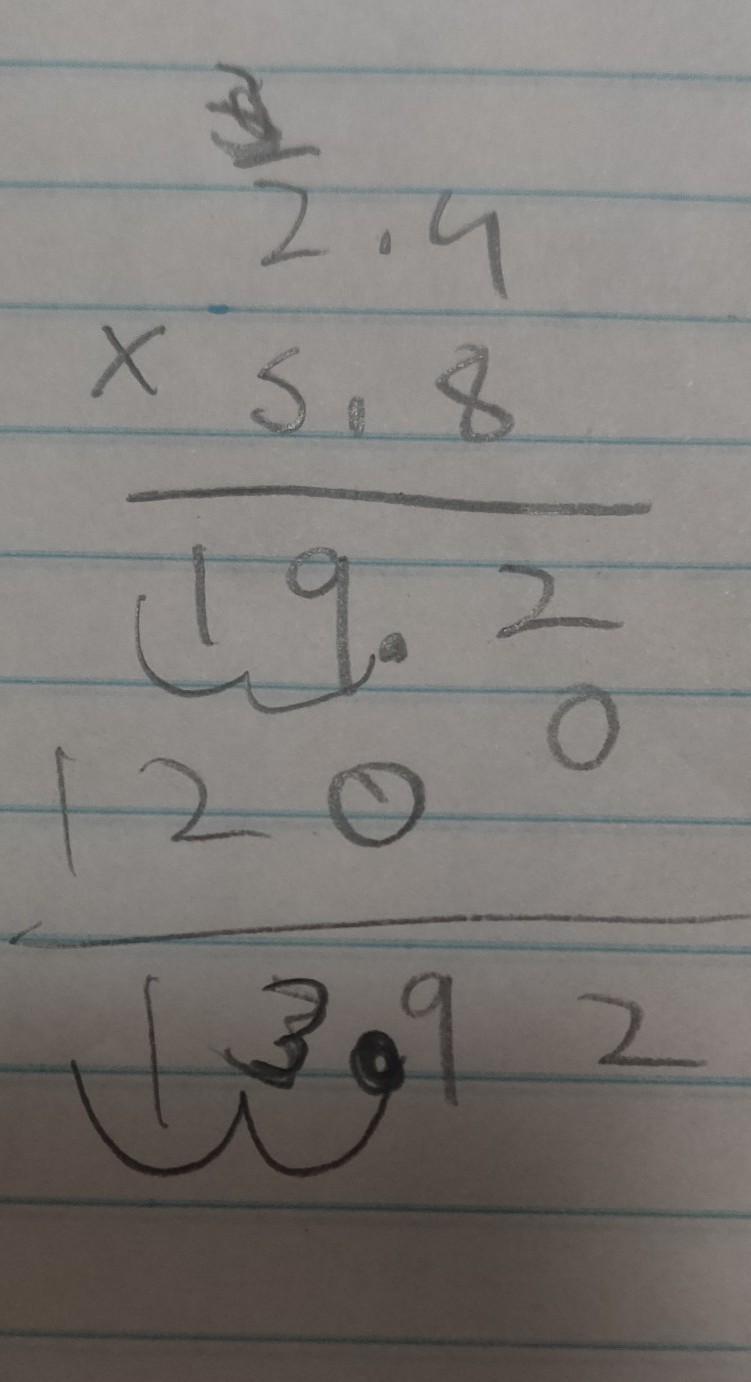 3
2.4
× 5.8
19.2
1200
13.92